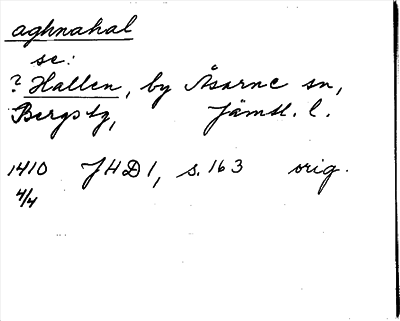 aghnahal
se:
? Hallen, by Åsarne sn,
Bergs tg, Jämtl. l.
1410 JHD 1, s. 163 orig.
4/4